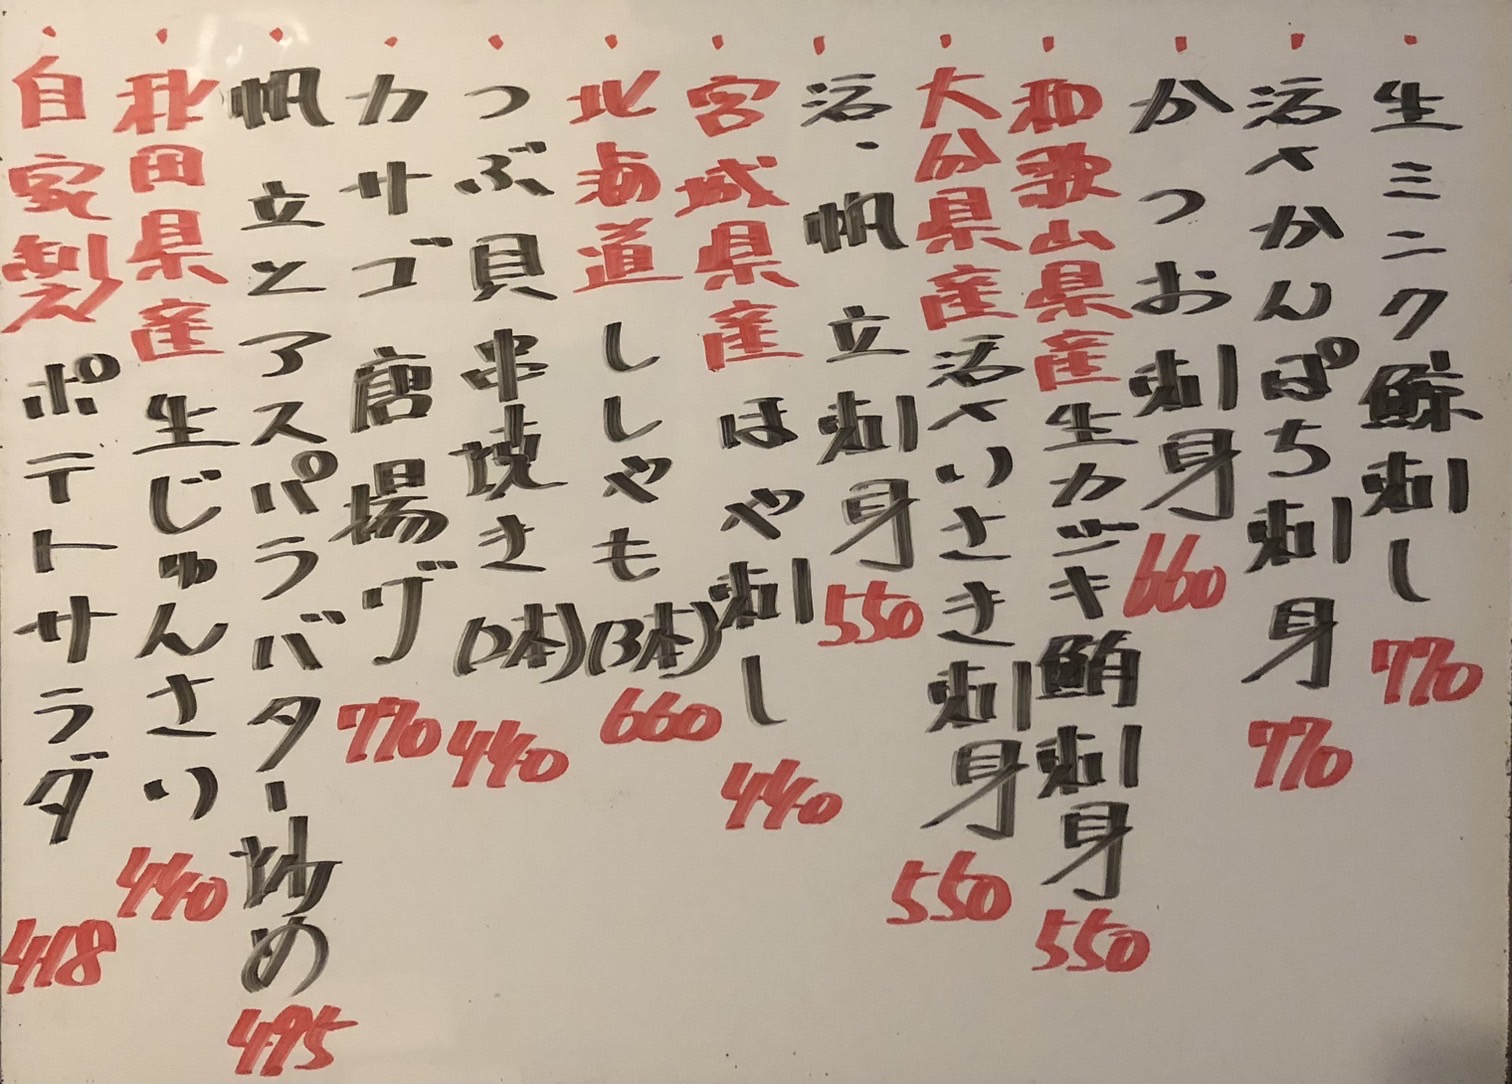 ・生ミンク鯨刺し 770
・活〆かんぱち刺身 770
・かつお刺身 660
・和歌山県産 生カジキ鮪刺身 550
・大分県産 活〆いさき刺身 550
・活・帆立刺身 550
・宮城県産 ほや刺し 440
・北海道 ししゃも(3本) 660
・つぶ貝串焼き(2本) 440
・カサゴ唐揚げ 770
・帆立とアスパラバター炒め 495
・秋田県産 生じゅんさい 440
・自家製 ポテトサラダ 418